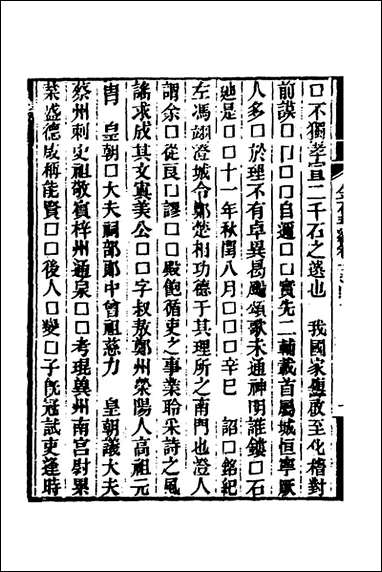 □不獨孝宣二千石之遴也　我國家應啟至化稽對
前謨□□□□自邇□□實先二輔載首屬城恒寧厥
人多□於理不有卓異曷颺頌歌未通神明誰鏤□石
廼是□□十一年秋閏八月□□□辛巳　詔□銘紀
左馮翊澄城令鄭楚相功德于其理所之南門也澄人
謂余□從良□謬□□殿飽循吏之事業聆采詩之風
謠求成其文寘美公□□字叔敖鄭州滎陽人高祖元
胄　皇朝□大夫祠部郎中曾祖慈力　皇朝議大夫
蔡州刺史祖敬賓梓州通泉□□考琨冀州南宮尉累
葉盛德咸稱能賢□□後人□變□子旣冠試吏逢時